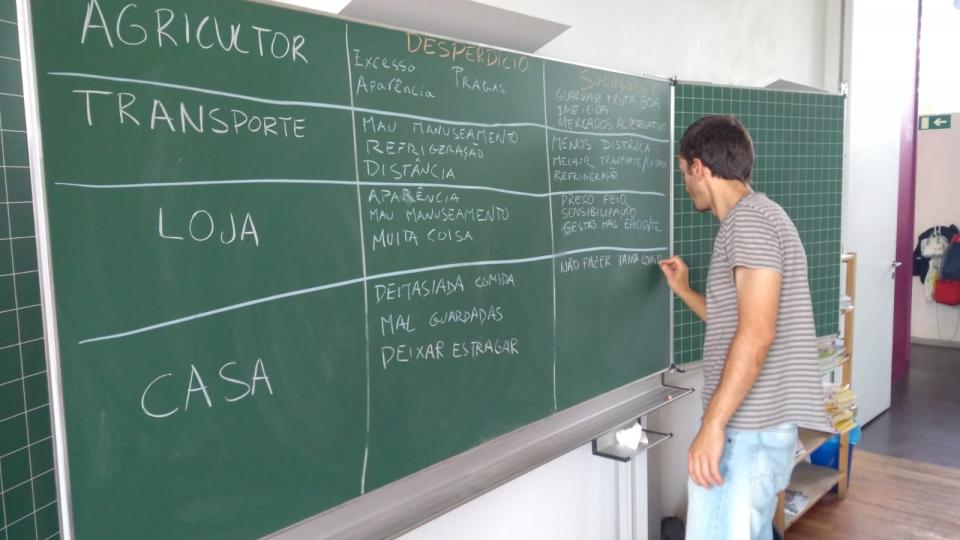 AGRICULTOR
DESPERDICIO
Excesso PRAGAS
Aparência
SOLUÇÕES
GUARDAR FRUTA BOA
INSETICIDA
MERCADOS ALTERNATIVO
TRANSPORTE
MAU MANUSEAMENTO
REFRIGERAÇÃO
DISTÂNCIA
MENOS DISTÂNCIA
MELHOR TRANSPORTE/
REFRIGERAÇÃO
LOJA
APARÊNCIA
MAU MANUSEAMENTO
MUITA COISA
PREÇO FEIO
SENSIBILIZAÇÃO
GESTÃO MAIS EFICIENTE
CASA
DEMASIADA COMIDA
MAL GUARDADAS
DEIXAR ESTRAGAR
NÃO FAZER TANTA COMID